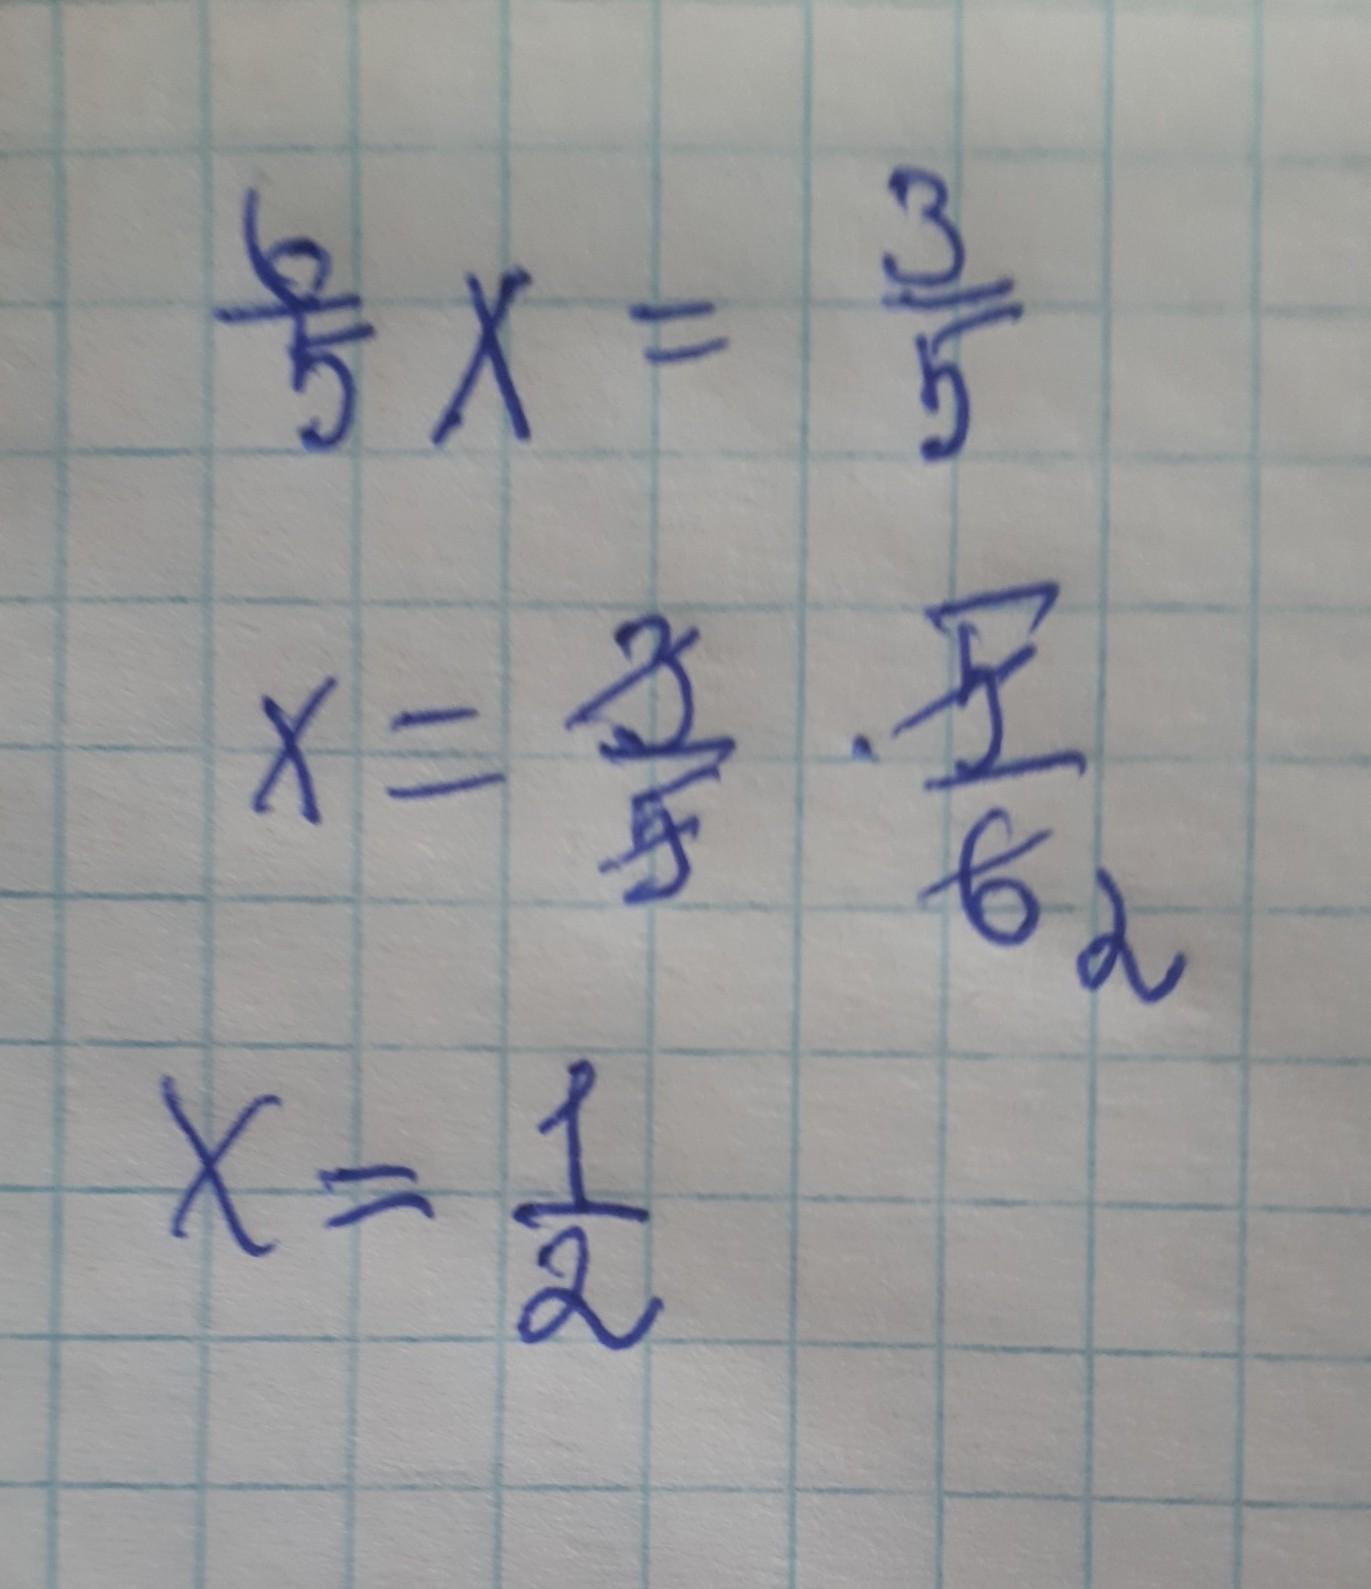 6/5 x = 3/5
x = 3/5 · 5/6 2
x = 1/2